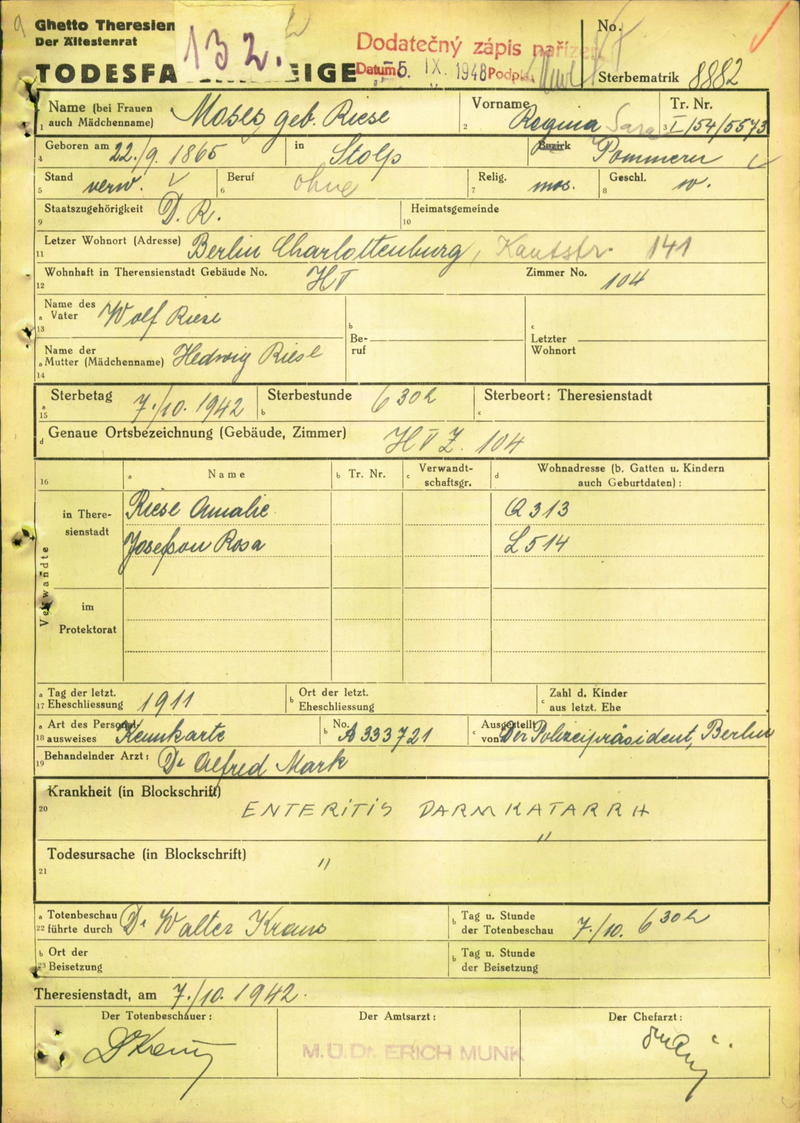 Ghetto Theresien
Der Ältestenrat
132.
Dodatečný zápis nařízen
Datum 5. IX. 1948 Podpis
No.
TODESFA IGE
Sterbematrik 8882
Name (bei Frauen auch Mädchenname) Moses geb. Riese
Vorname Regina Sara
Tr. Nr. I/154/5573
Geboren am 22./9. 1865 in Stolp Bezirk Pommern
Stand verw. Beruf ohne Relig. mos. Geschl. w.
Staatszugehörigkeit D. R. Heimatsgemeinde
Letzer Wohnort (Adresse) Berlin Charlottenburg, Kantstr. 141
Wohnhaft in Theresienstadt Gebäude No. HV Zimmer No. 104
Name des Vater Wolf Riese Beruf Letzter Wohnort
Name der Mutter (Mädchenname) Hedwig Riese
Sterbetag 7./10. 1942 Sterbestunde 6 30 h Sterbeort: Theresienstadt
Genaue Ortsbezeichnung (Gebäude, Zimmer) HV Z. 104
Name Tr. Nr. Verwandtschaftsgr. Wohnadresse (b. Gatten u. Kindern auch Geburtdaten):
Verwandte
in Theresienstadt
Riese Amalie Q 313
Josefson Rosa L 514
im Protektorat
Tag der letzt. Eheschliessung 1911 Ort der letzt. Eheschliessung Zahl d. Kinder aus letzt. Ehe
Art des Personalausweises Kennkarte No. A 333721 Ausgestellt von Der Polizeipräsident, Berlin
Behandelnder Arzt: Dr Alfred Mark
Krankheit (in Blockschrift) ENTERITIS DARMKATARRH
"
Todesursache (in Blockschrift) "
Totenbeschau führte durch Dr Walter Kraus Tag u. Stunde der Totenbeschau 7./10. 6 30 h
Ort der Beisetzung Tag u. Stunde der Beisetzung
Theresienstadt, am 7./10. 1942.
Der Totenbeschauer: Der Amtsarzt: Der Chefarzt:
M.U.Dr. ERICH MUNK